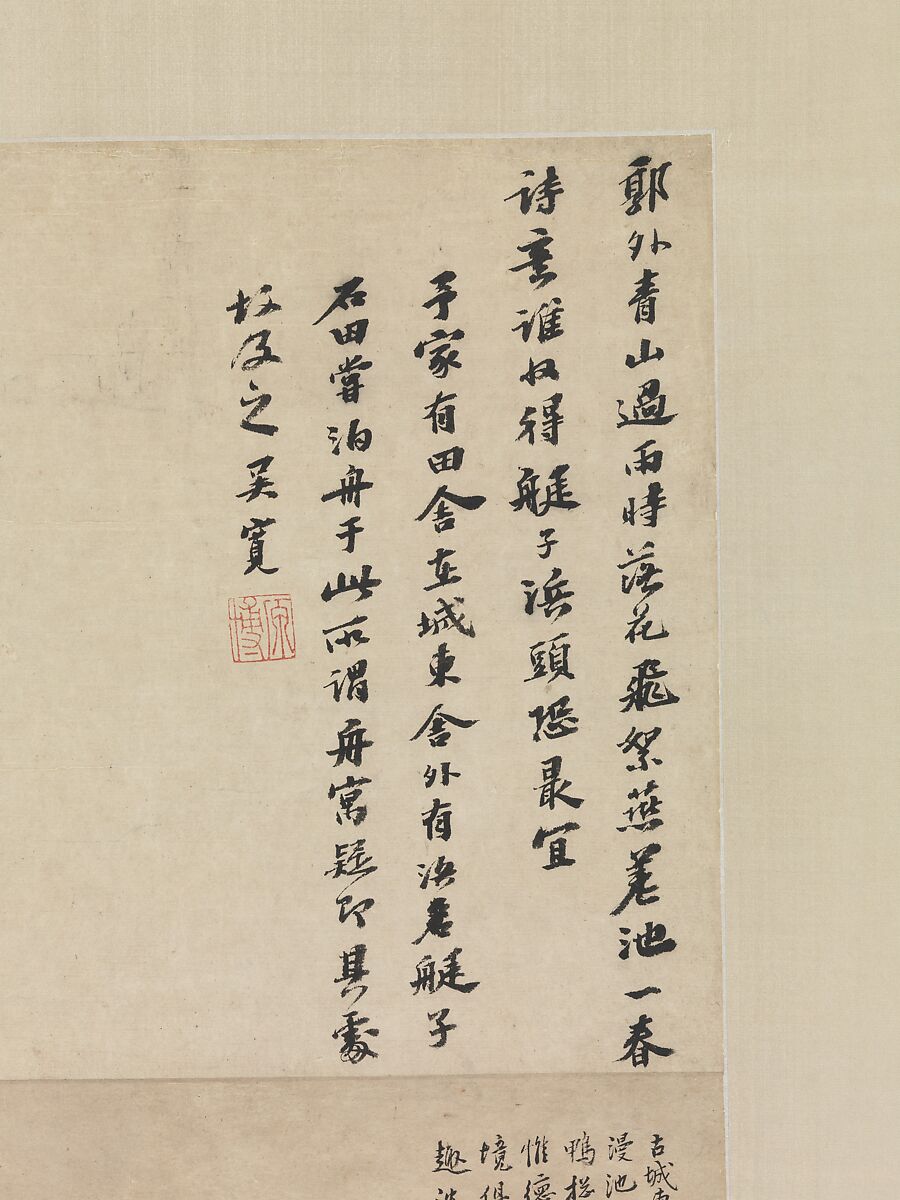 郭外青山過雨時落花飛絮燕差池一春
詩意誰收得艇子浜頭恐最宜
予家有田舍在城東舍外有浜名艇子
石田嘗泊舟于此所謂舟寓疑即其處
故及之吳寬
原博
古城
漫池
鴨
惟德
境俱
趣